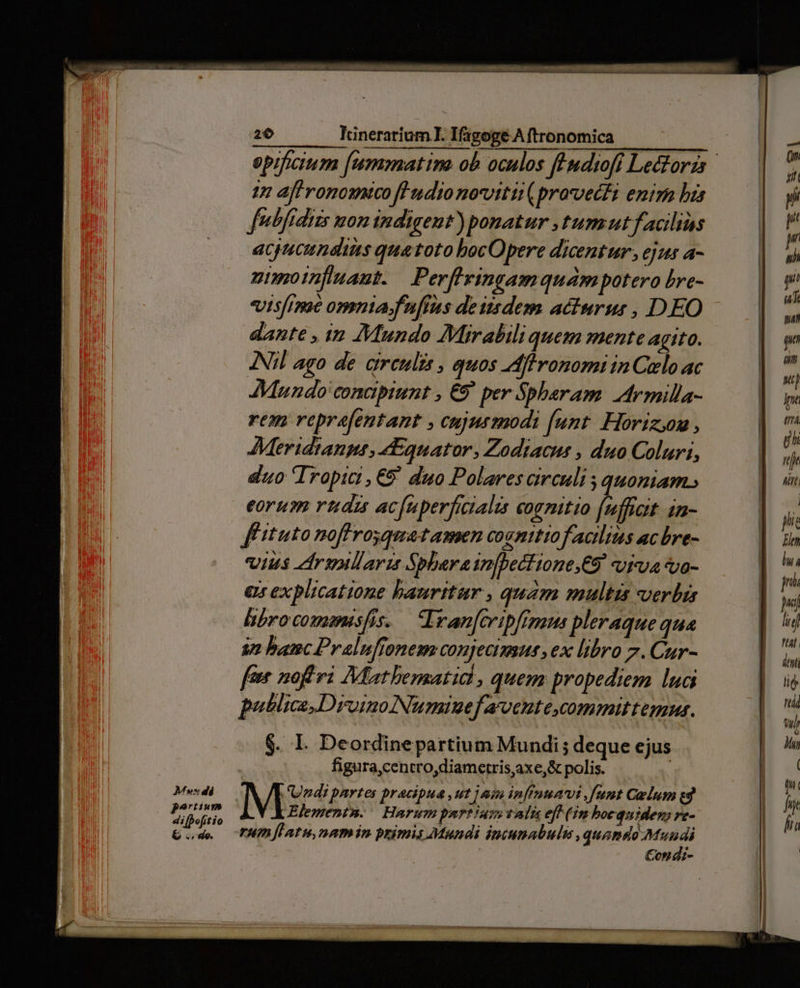 20 Itinerarium I. Iſagoge Aſtronomica
opificium ſummatim ob oculos ſtudioſi Lectoris
in aſtronomico ſtudio novitii (provecti enim his
ſubſidiis non indigent) ponatur, tum ut facilius
ac jucundius quæ toto hoc Opere dicentur, ejus a-
nimo influant. Perſtringam quàm potero bre-
viſſimè omnia, fuſius de iisdem acturus, DEO
dante, in Mundo Mirabili quem mente agito.
Nil ago de circulis, quos Aſtronomi in Cælo ac
Mundo concipiunt, & per Sphæram Armilla-
rem repræſentant, cujusmodi ſunt Horizon,
Meridianus, Æquator, Zodiacus, duo Coluri,
duo Tropici, & duo Polares circuli; quoniam
eorum rudis ac ſuperficialis cognitio ſufficit in-
ſtituto noſtro; quæ tamen cognitio facilius ac bre-
vius Armillaris Sphæræ inſpectione, & viva vo-
cis explicatione hauritur, quàm multis verbis
libro commiſſis. Tranſcripſimus pleraque quæ
in hanc Præluſionem conjecimus, ex libro 7. Cur-
ſus noſtri Mathematici, quem propediem luci
publicæ, Divino Numine favente, committemus.
§. I. De ordine partium Mundi; deque ejus
figura, centro, diametris, axe, & polis.
Mundi
partium
diſpoſitio
&
MUndi partes præcipuæ, ut jam inſinuavi, ſunt Cælum &
Elementa. Harum partium talis eſt (in hoc quidem re-
rum ſtatu, nam in primis Mundi incunabulis, quando Mundi
Condi-